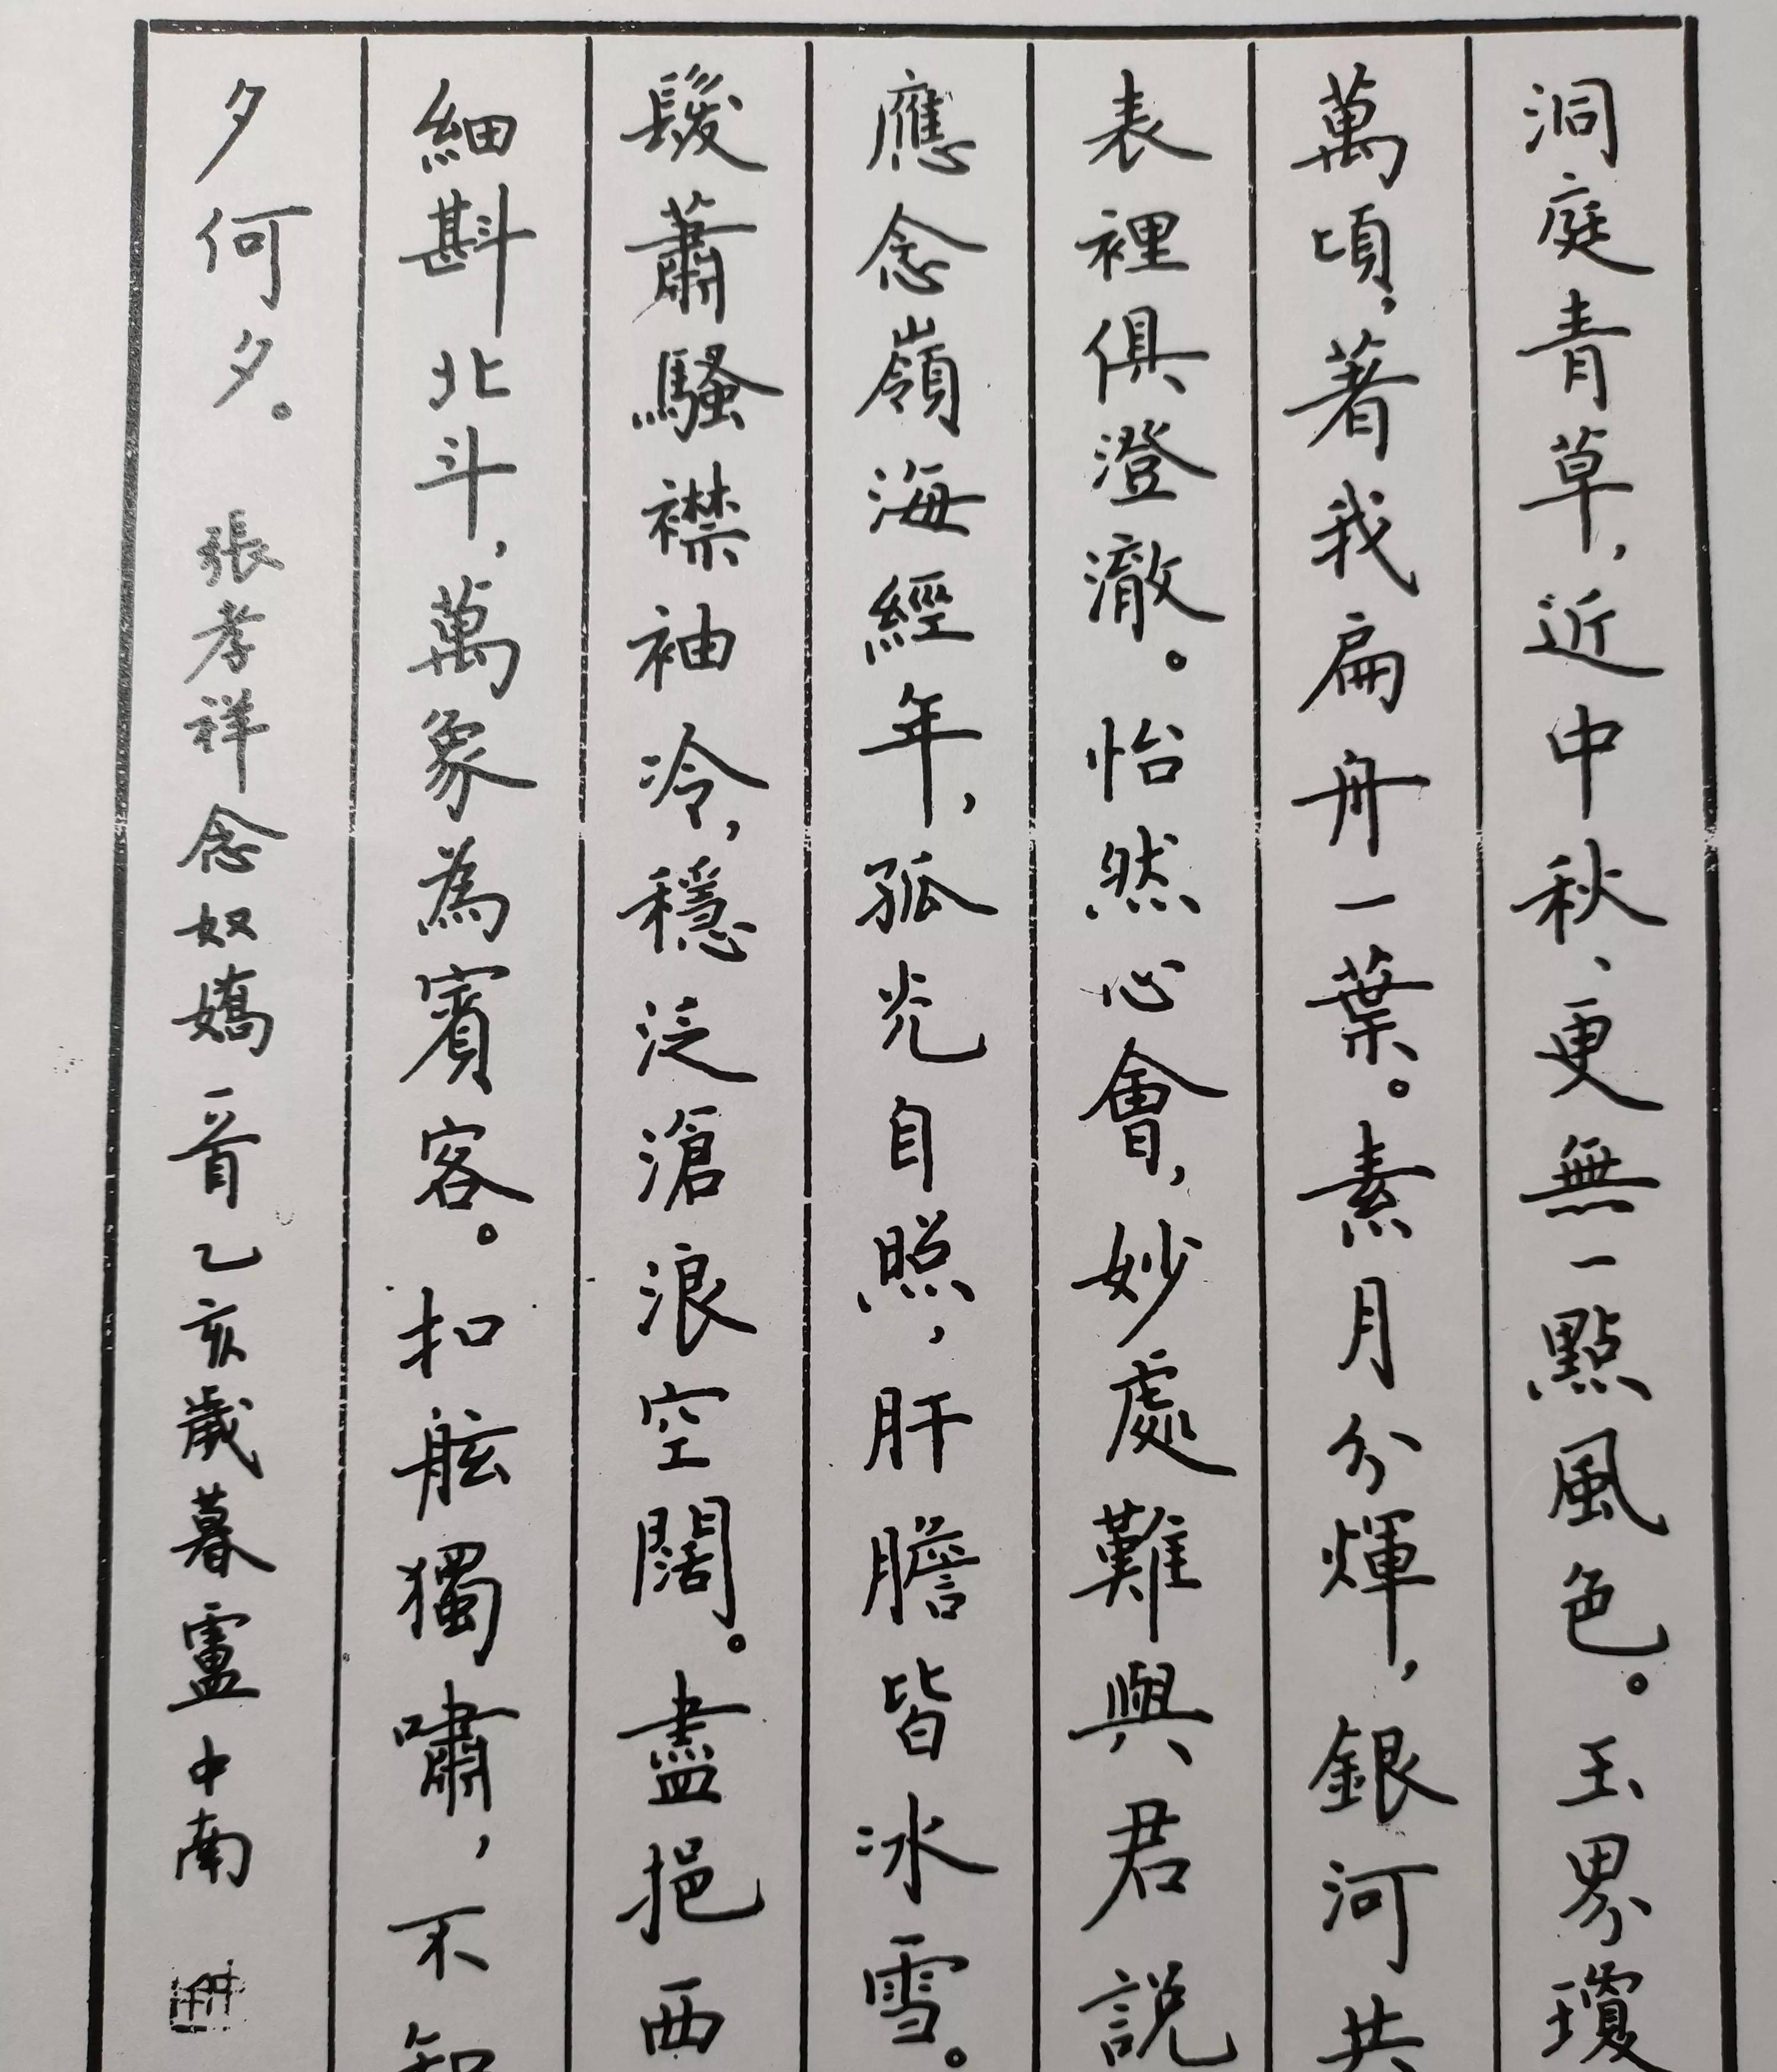 洞庭青草，近中秋、更無一點風色。玉界瓊
萬頃，著我扁舟一葉。素月分輝，銀河共
表裡俱澄澈。怡然心會，妙處難與君説
應念嶺海經年，孤光自照，肝膽皆冰雪。
髮蕭騷襟袖冷，穩泛滄浪空闊。盡挹西
細斟北斗，萬象為賓客。扣舷獨嘯，不知
夕何夕。 張孝祥念奴嬌一首乙亥歲暮盧中南